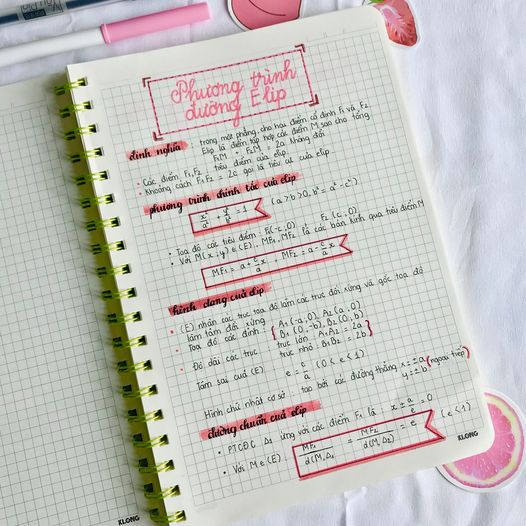 Phương trình
đường Elip
định nghĩa : trong mặt phẳng, cho hai điểm cố định F₁ và F₂
Elip là điểm tập hợp các điểm M sao cho tổng
F₁M + F₂M = 2a không đổi
• Các điểm F₁, F₂ : tiêu điểm của elip
• Khoảng cách F₁F₂ = 2c gọi là tiêu cự của elip
phương trình chính tắc của elip
x²/a² + y²/b² = 1 (a > b > 0, b² = a² - c²)
• Toạ độ các tiêu điểm : F₁(-c, 0) F₂(c, 0)
• Với M(x, y) ∈ (E), MF₁, MF₂ là các bán kính qua tiêu điểm M
MF₁ = a + c/a x , MF₂ = a - c/a x
hình dạng của elip
• (E) nhận các trục toạ độ làm các trục đối xứng và gốc toạ độ
làm tâm đối xứng
• Toạ độ các đỉnh : A₁(-a, 0), A₂(a, 0)
B₁(0, -b), B₂(0, b)
Độ dài các trục : trục lớn : A₁A₂ = 2a
trục nhỏ : B₁B₂ = 2b
Tâm sai của (E) : e = c/a (0 < e < 1)
Hình chữ nhật cơ sở : tạo bởi các đường thẳng x = ±a (ngoại tiếp)
y = ±b
đường chuẩn của elip
• PTCĐC Δ₁ ứng với các điểm F₁ là x ± a/e = 0
• Với M ∈ (E) MF₁/d(M, Δ₁) = MF₂/d(M, Δ₂) = e (e < 1)
KLONG
KLONG